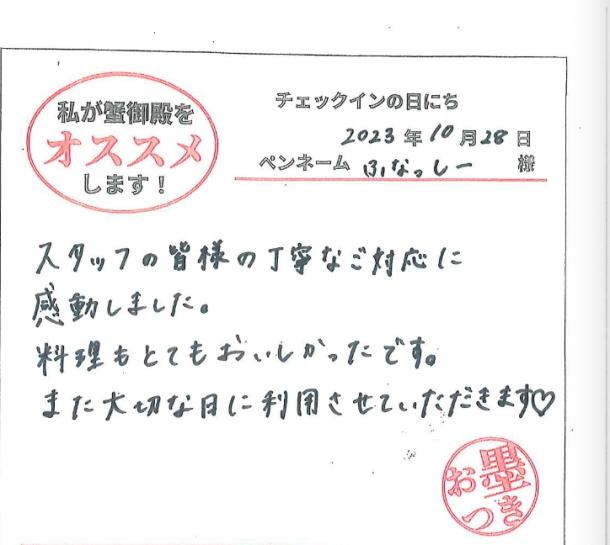 私が蟹御殿を
オススメ
します！
チェックインの日にち
2023年10月28日
ペンネーム ふなっしー 様
スタッフの皆様の丁寧なご対応に
感動しました。
料理もとてもおいしかったです。
また大切な日に利用させていただきます♡
お墨つき